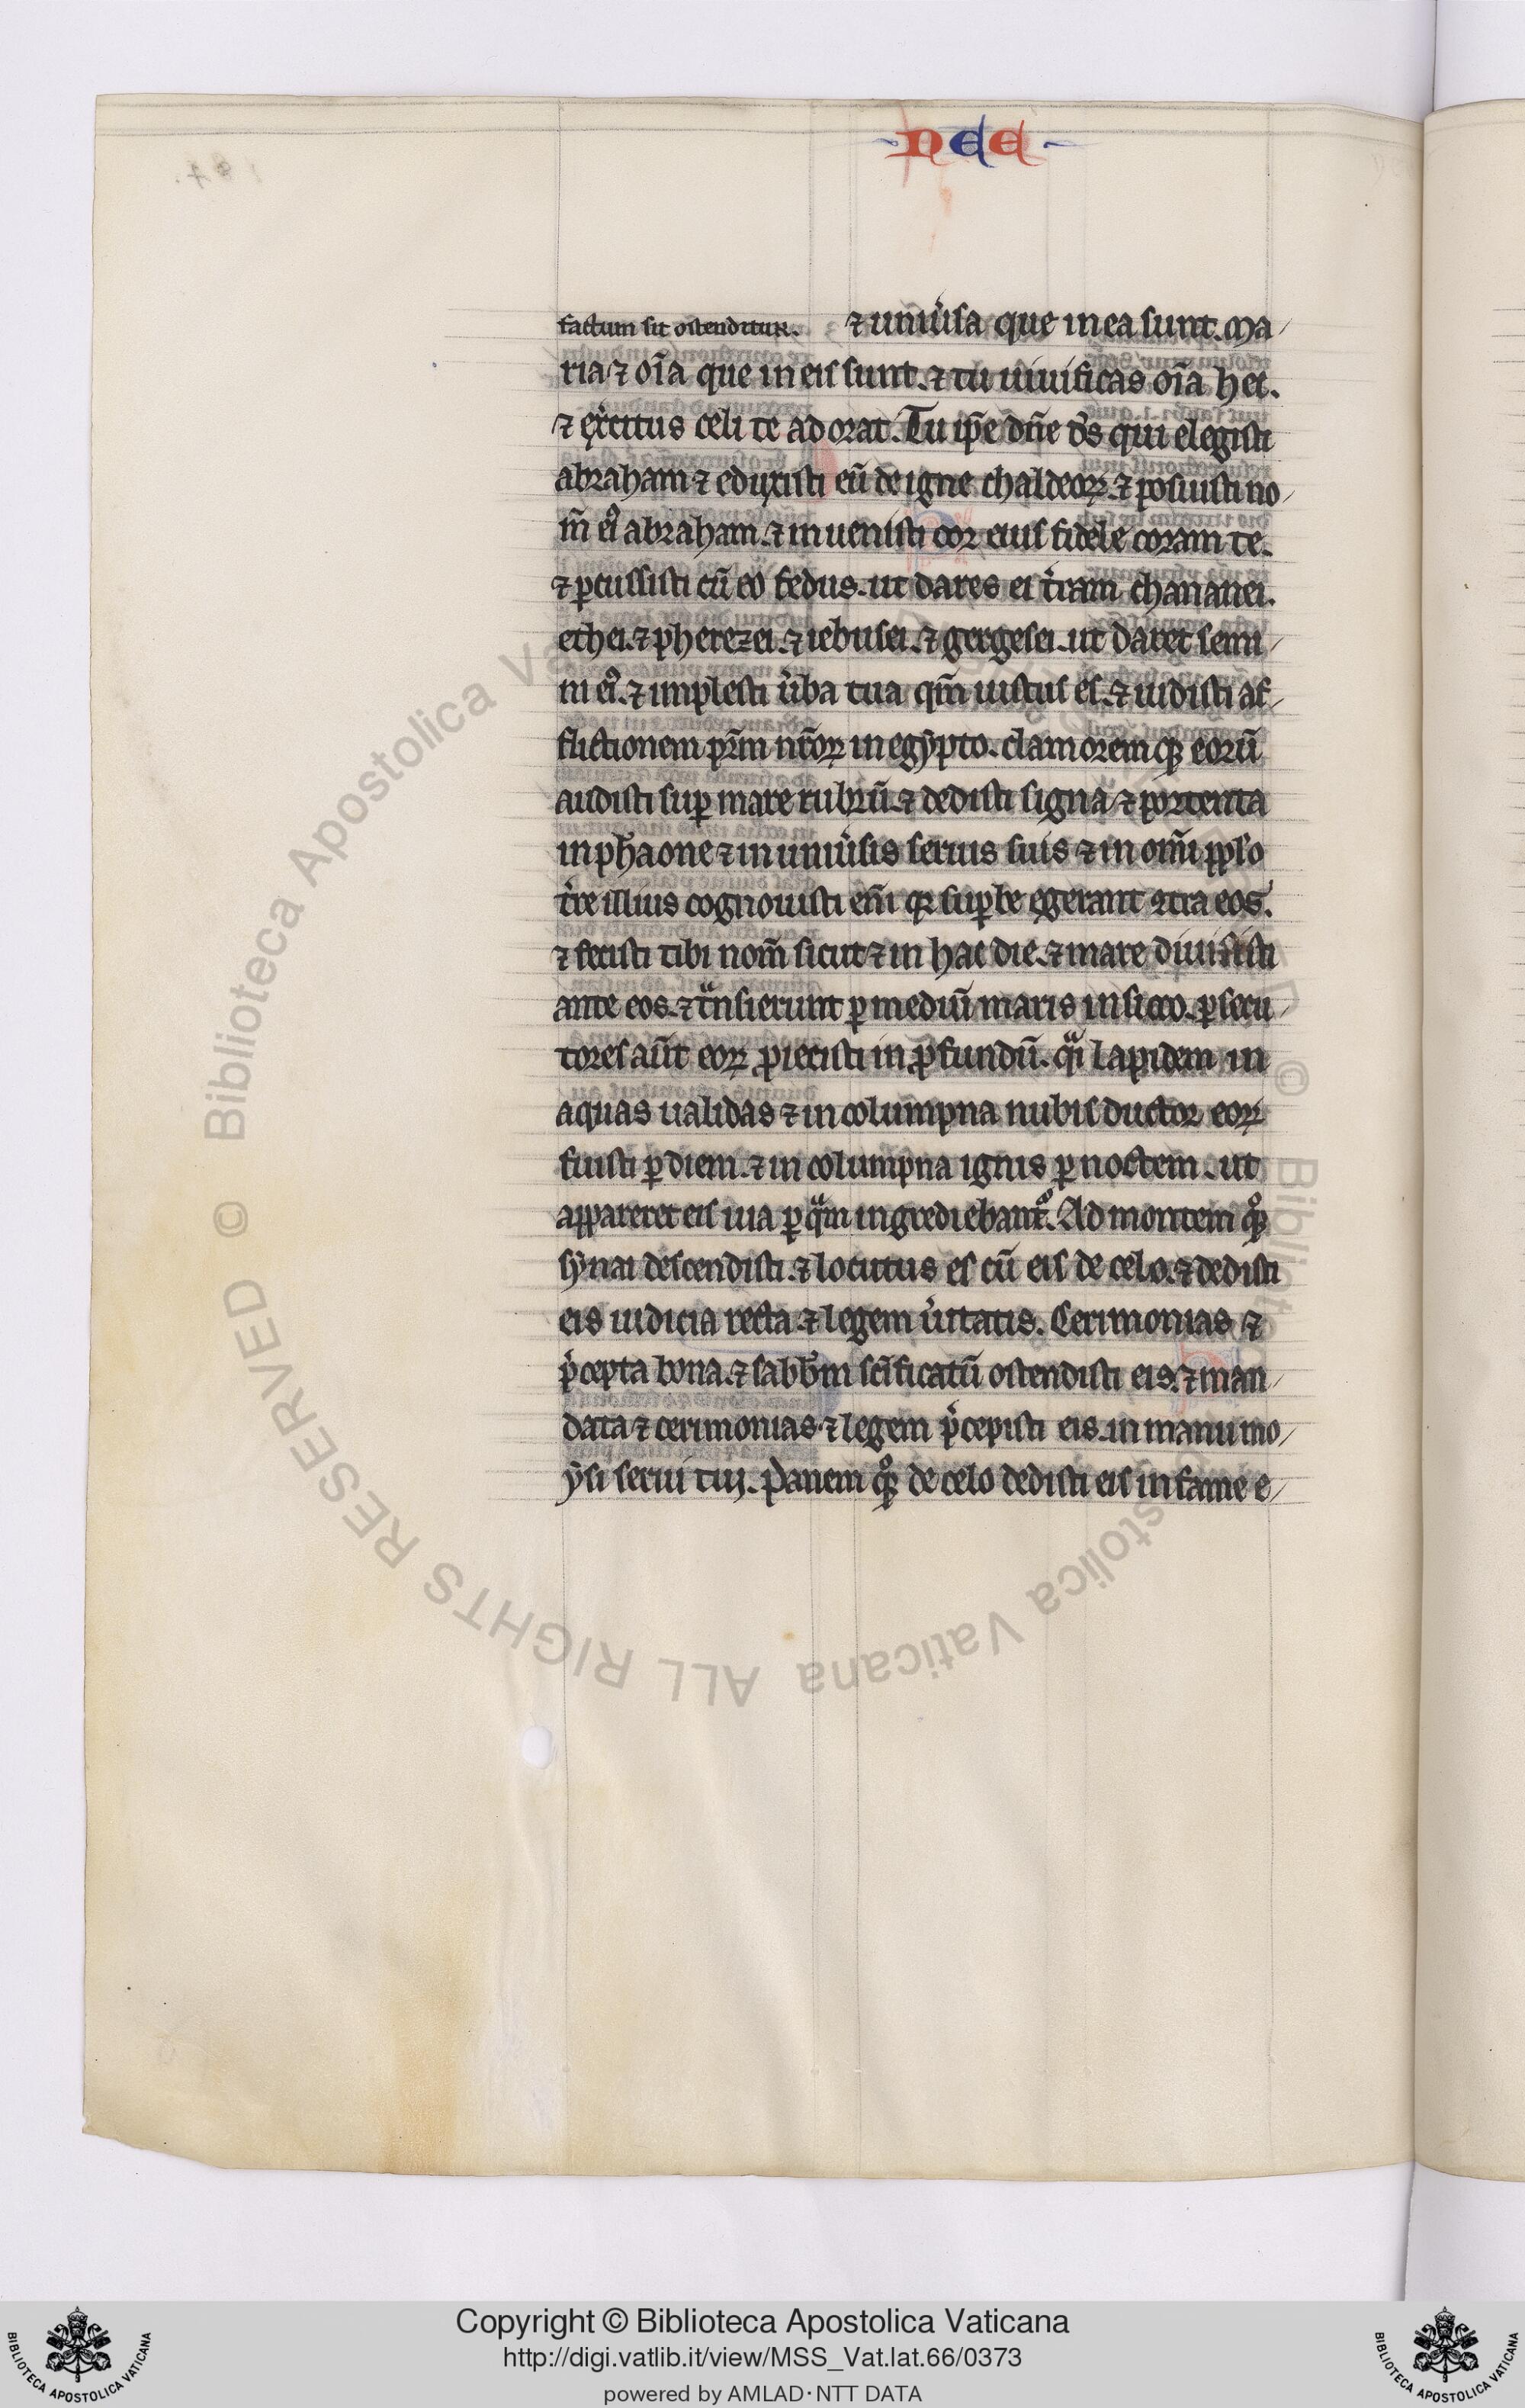 NEE
factum sit ostenditur. ⁊ uniũsa que in ea sunt. Ma/
ria ⁊ oĩa que in eis sunt. ⁊ tu uiuificas oĩa hec.
⁊ exẽcitus celi te adorat. Tu ip̃e dñe dẽs qui elegisti
abraham ⁊ eduxisti eũ de igne chaldeoꝝ. ⁊ posuisti no/
m̃ eiꝰ abraham. ⁊ inuenisti cor eius fidele coram te.
⁊ ꝑcussisti cũ eo fedus. ut dares ei t̃ram chananei.
ethei. ⁊ pherezei. ⁊ iebusei. ⁊ gergesei. ut daret semi/
ni eiꝰ. ⁊ implesti ũba tua qm̃ iustus es. ⁊ uidisti af/
flictionem pr̃m nr̃oꝝ in egypto. clamoremqꝫ eorũ
audisti suꝑ mare rubrũ. ⁊ dedisti signa ⁊ portenta
in pharaone ⁊ in uniũsis seruis suis ⁊ in om̃i pplo
t̃re illius cognouisti em̃ qꝛ suꝑbe egerant ꝯtra eos.
⁊ fecisti tibi nom̃ sicut ⁊ in hac die. ⁊ mare diuisisti
ante eos. ⁊ tᵃnsierunt ꝑ mediũ maris in sicco. ꝑsecu/
tores aũt eoꝝ ꝓiecisti in ꝓfundũ. qᵃi lapidem in
aquas ualidas ⁊ in columpna nubis ductor eoꝝ
fuisti ꝑ diem. ⁊ in columpna ignis ꝑ noctem. ut
appareret eis uia ꝑ qᵃm ingrediebant᷑. Ad montem qꝫ
synai descendisti. ⁊ locutus es cũ eis de celo. ⁊ dedisti
eis iudicia recta. ⁊ legem ũitatis. Cerimonias ⁊
p̃cepta bona. ⁊ sabb̃m sc̃ificatũ ostendisti eis. ⁊ man/
data ⁊ cerimonias. ⁊ legem p̃cepisti eis. in manu mo/
ysi serui tui. Panem qꝫ de celo dedisti eis in fame e/
© Biblioteca Apostolica Vaticana ALL RIGHTS RESERVED
Copyright © Biblioteca Apostolica Vaticana
http://digi.vatlib.it/view/MSS_Vat.lat.66/0373
powered by AMLAD·NTT DATA
BIBLIOTECA APOSTOLICA VATICANA
BIBLIOTECA APOSTOLICA VATICANA